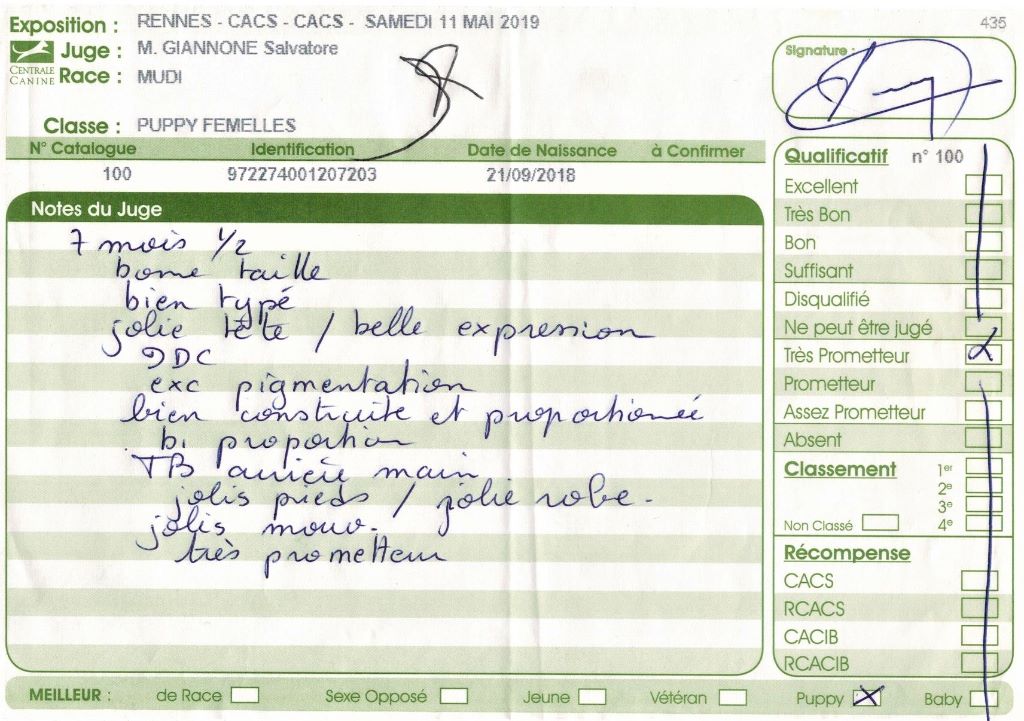 Exposition : RENNES - CACS - CACS - SAMEDI 11 MAI 2019
435
Juge : M. GIANNONE Salvatore
CENTRALE CANINE
Race : MUDI
Signature :
Classe : PUPPY FEMELLES
N° Catalogue Identification Date de Naissance à Confirmer
100 972274001207203 21/09/2018
Notes du Juge
7 mois 1/2
bonne taille
bien typé
jolie tête / belle expression
DDC
exc pigmentation
bien construite et proportionnée
bi proportion
TB main
jolis pieds / jolie robe.
jolis mouv.
très prometteur
Qualificatif n° 100
Excellent
Très Bon
Bon
Suffisant
Disqualifié
Ne peut être jugé
Très Prometteur
Prometteur
Assez Prometteur
Absent
Classement 1er
2e
3e
Non Classé 4e
Récompense
CACS
RCACS
CACIB
RCACIB
MEILLEUR : de Race Sexe Opposé Jeune Vétéran Puppy X Baby